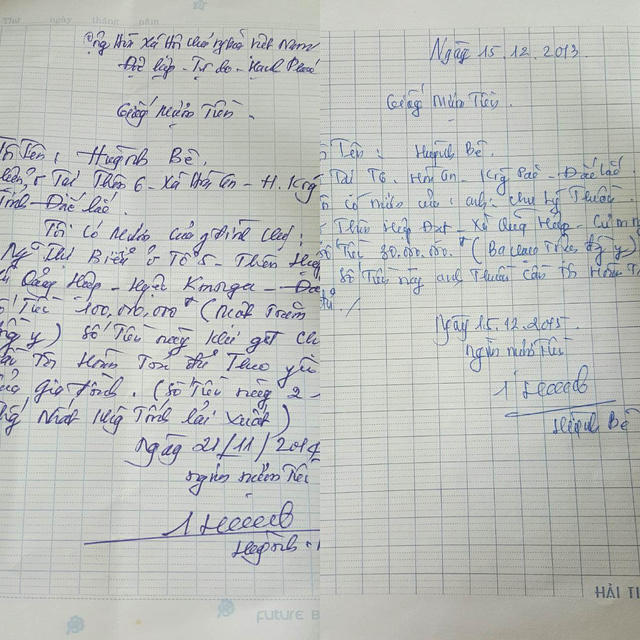 Thứ ngày tháng năm
Cộng Hòa Xã Hội chủ nghĩa việt Nam
Độc lập - Tự do - Hạnh Phúc
Giấy Mượn Tiền
Tên : Huỳnh Bê.
Tại Thôn 6 - Xã Hòa An - H. Krông
Tỉnh - Đắc lắc.
Tôi có mượn của gia đình chú :
Thị Biển ở Tổ 5 - Thôn Hiệp
Quảng Hiệp - Huyện Kmơgar -
Tiền 100.000.000đ (Một Trăm
y) Số Tiền này khi gđ
Tôi Hoàn Trả đủ Theo yêu
gia đình. (Số Tiền này 2
Nhất Tính lãi Xuất)
Ngày 21/11/2014
người mượn Tiền
Huỳnh
FUTURE B
Ngày 15.12.2013.
Giấy Mượn Tiền.
Tên : Huỳnh Bê.
Tại T6. Hòa An - Krông Pắc - Đắc lắc.
có mượn của : anh : chu Thuấn.
Thôn Hiệp Đạt - Xã Quảng Hiệp - Cư M
Số Tiền 30.000.000.đ (Ba chục Triệu đồng y)
Số Tiền này anh Thuấn cần Tôi Hoàn
đủ. /
Ngày 15.12.2015.
người mượn Tiền
Huỳnh Bê
HẢI TI